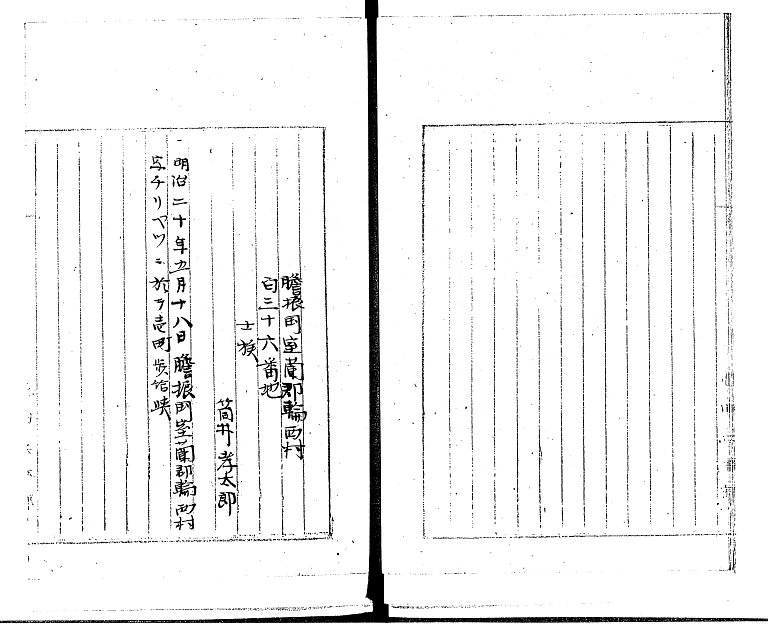 膽振國室蘭郡輪西村
百三十六番地
士族
筒井孝太郎
一明治二十年五月十八日膽振國室蘭郡輪西村
字チリベツニ於テ壱町歩